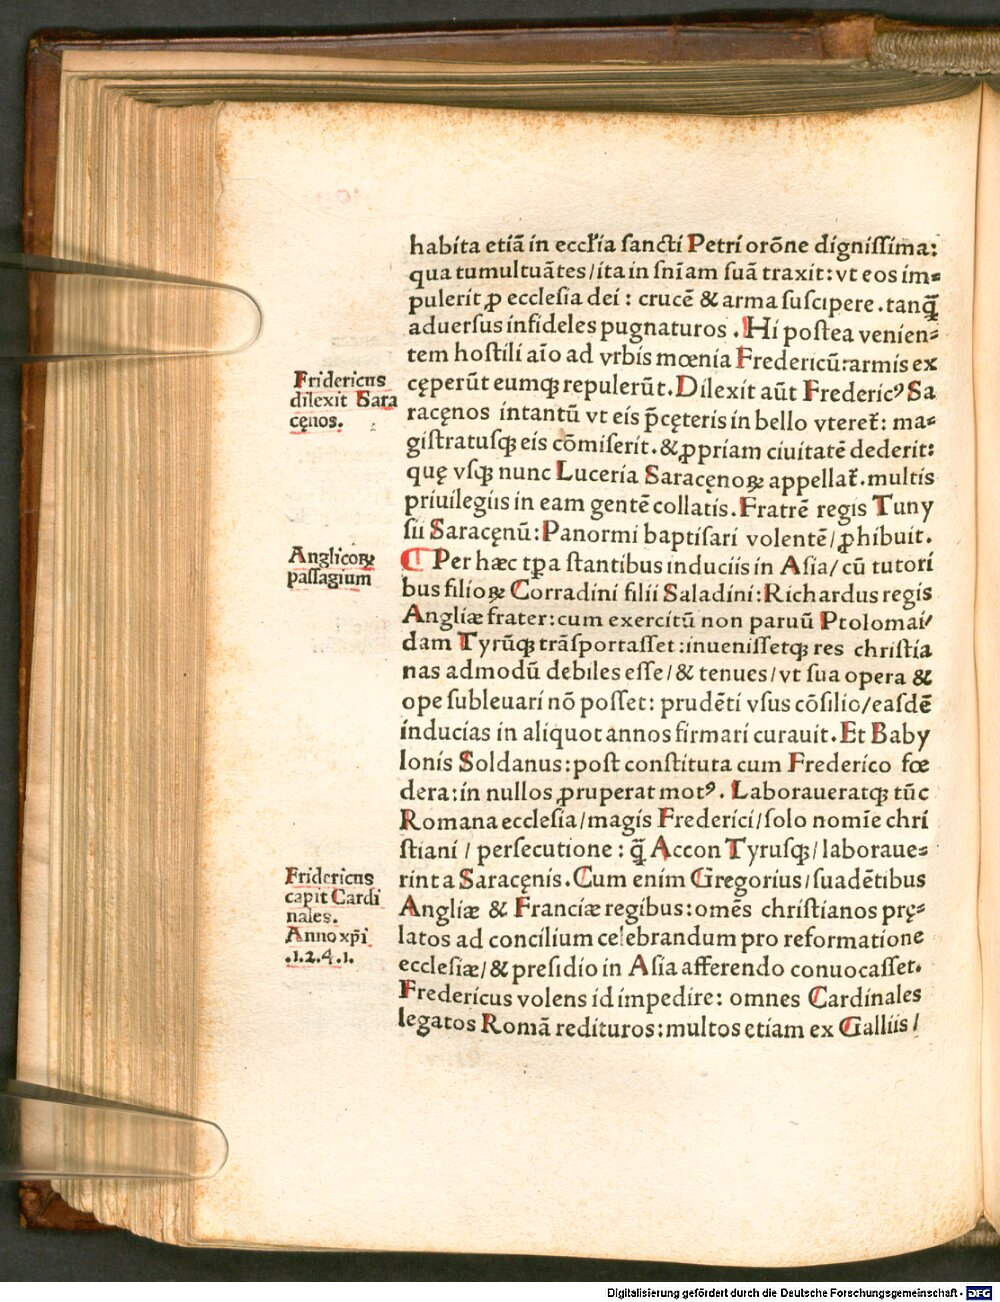 habita etiā in eccl'ia sancti Petri orōne dignissima:
qua tumultuātes/ita in sn̄iam suā traxit:vt eos im⸗
pulerit ꝓ ecclesia dei : crucē & arma suscipere.tanq̄ꝫ
aduersus infideles pugnaturos . Hi postea venien⸗
tem hostili aīo ad vrbis mœnia Fredericū:armis ex
cęperūt eumqꝫ repulerūt. Dilexit aūt Frederic⁹ Sa
racęnos intantū vt eis p̄cęteris in bello vteret᷑: ma⸗
gistratusqꝫ eis cōmiserit.&ꝓpriam ciuitatē dederit:
quę vsqꝫ nunc Luceria Saracęnoꝝ appellat᷑.multis
priuilegiis in eam gentē collatis. Fratrē regis Tuny
sii Saracęnū: Panormi baptisari volentē/ꝓhibuit.
¶ Per hæc tp̄a stantibus induciis in Asia/cū tutori
bus filioꝝ Corradini filii Saladini: Richardus regis
Angliæ frater:cum exercitū non paruū Ptolomai/
dam Tyrūqꝫ trāsportasset:inuenissetqꝫ res christia
nas admodū debiles esse/& tenues/vt sua opera &
ope subleuari nō posset: prudēti vsus cōsilio/easdē
inducias in aliquot annos firmari curauit. Et Baby
lonis Soldanus:post constituta cum Frederico fœ
dera:in nullos ꝓruperat mot⁹. Laboraueratqꝫ tūc
Romana ecclesia/magis Frederici/solo nomīe chri
stiani / persecutione : q̄ꝫ Accon Tyrusqꝫ/laboraue⸗
rint a Saracęnis. Cum enim Gregorius/suadētibus
Angliæ & Franciæ regibus:omēs christianos prę⸗
latos ad concilium celebrandum pro reformatione
ecclesiæ/& presidio in Asia afferendo conuocasset.
Fredericus volens id impedire: omnes Cardinales
legatos Romā redituros:multos etiam ex Galliis/
Fridericus
dilexit Sara
cęnos.
Anglicoꝝ
passagium
Fridericus
capit Cardi
nales.
Anno xp̄i
.1.2.4.1.
Digitalisierung gefördert durch die Deutsche Forschungsgemeinschaft - DFG